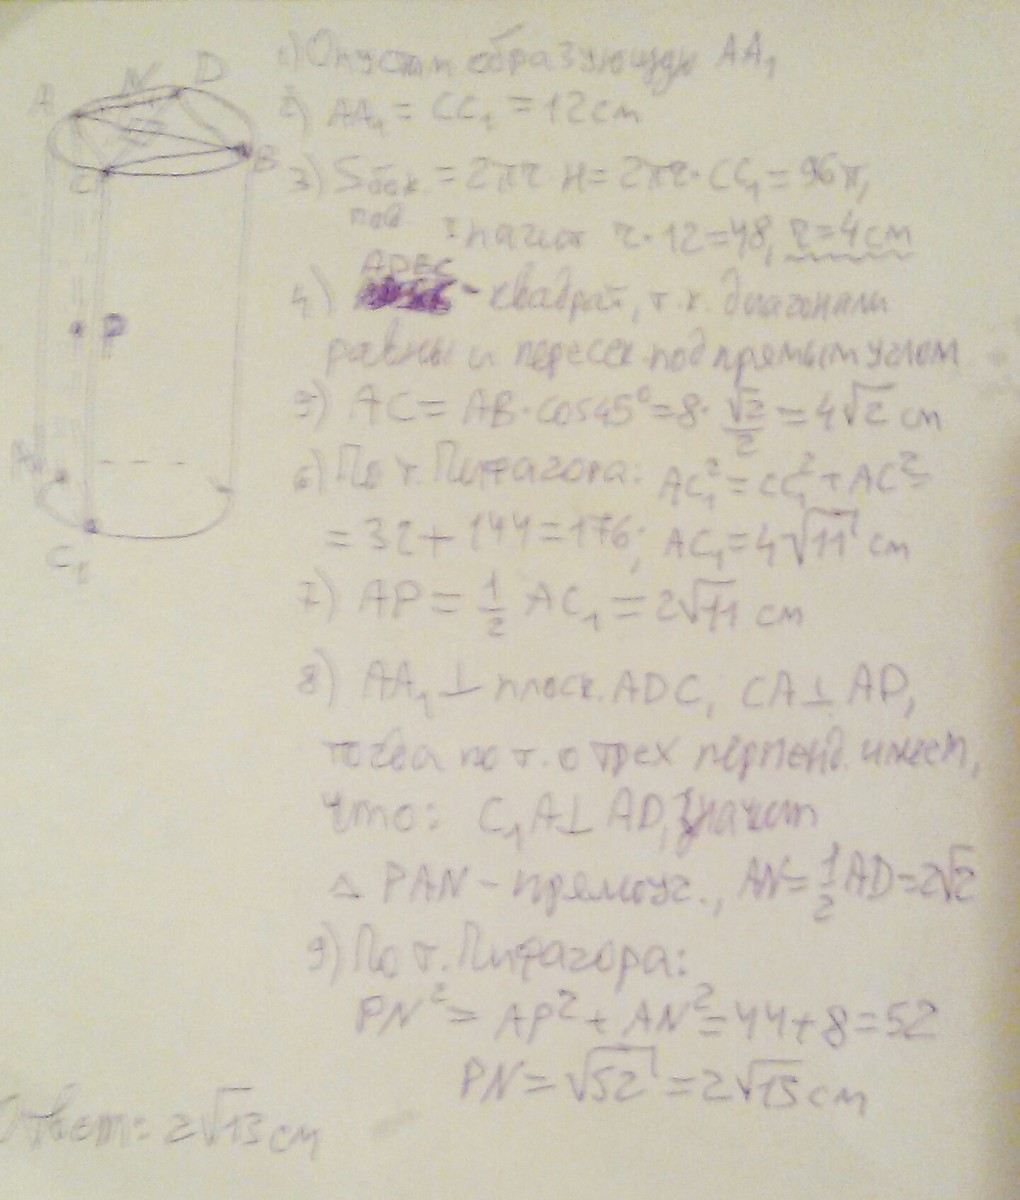 A N D
C B
P
A₁
C₁
1) Опустим образующую AA₁
2) AA₁ = CC₁ = 12 см
3) Sбок. пов = 2πr·H = 2πr·CC₁ = 96π,
значит r·12=48, r=4 см
4) ADBC - квадрат, т.к. диагонали
равны и пересек. под прямым углом
5) AC = AB·cos45° = 8·√2/2 = 4√2 см
6) По т. Пифагора: AC₁² = CC₁² + AC² =
= 32 + 144 = 176; AC₁ = 4√11 см
7) AP = 1/2 AC₁ = 2√11 см
8) AA₁ ⊥ плоск. ADC, CA ⊥ AD,
тогда по т. о трех перпенд. имеем,
что: C₁A ⊥ AD, значит
△ PAN - прямоуг., AN = 1/2 AD = 2√2
9) По т. Пифагора:
PN² = AP² + AN² = 44 + 8 = 52
PN = √52 = 2√13 см
Ответ: 2√13 см